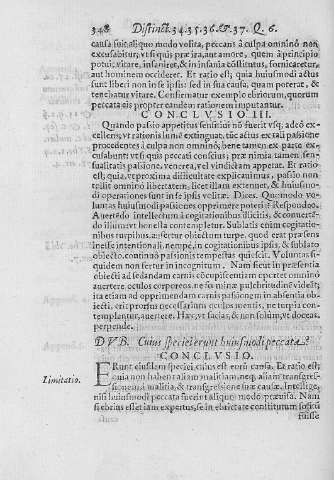 348 Distinct. 34.35.36.&.37. Q. 6.
causa sui: aliquo modo volita, peccans à culpa omninò non
excusabitur; vt si quis præ ira, aut amore, quem à principio
potuit vitare, insaniret, & in insania cõstitutus, fornicaretur,
aut hominem occideret. Et ratio est; quia huiusmodi actus
sunt liberi non in se ipsis: sed in sua causa, quam poterat, &
tenebatur vitare. Confirmatur exemplo ebriorum, quorum
peccata eis propter eandem rationem imputantur.
CONCLVSIO III.
Quando passio appetitus sensitiui nõ fuerit vsq; adeò ex-
cellens, vt rationis lumẽ extinguat, tũc actus ex tali passione
procedentes à culpa non omninò, bene tamen ex parte ex-
cusabunt; vt si quis peccati conscius, præ nimia tamen sen-
sualitatis passione, venerea, vel vindictam appetat. Et ratio
est; quia, vt proxima difficultate explicauimus, passio non
tollit omninò libertatem, licet illam extenuet, & huiusmo-
di operationes sunt in se ipsis volitæ. Dices. Quomodo vo-
luntas huiusmodi passiones opprimere potest? Respondeo.
Auertẽdo intellectum à cogitationibus illicitis, & conuertẽ-
do illum ad honesta contemplãda. Sublatis enim cogitatio-
nibus turpibus, aufertur obiectum turpe, quod erat præsens
in esse intentionali, nempè, in cogitationibus ipsis, & sublato
obiecto, continuò passionis tempestas quiescit. Voluntas si-
quidem non fertur in incognitum. Nam sicut in præsentia
obiecti ad sedandam carnis cõcupiscentiam oportet omninò
auertere oculos corporeos, ne sis minæ pulchritudine videãt;
ita etiam ad opprimendam carnis passionem in absentia ob-
iecti, erit prorsus necessarium oculos mentis, ne turpia con-
templantur, auertere. Hæc, vt facias, & non solùm, vt doceas,
perpende.
DVB. Cuius speciei erunt huiusmodi peccata?
CONCLVSIO.
Erunt eiusdem speciei cuius est eorũ causa. Et ratio est;
Limitatio. quia non habent aliam malitiam, neq; aliam transgres-
sionem à malitia, & transgressione suæ causæ. Intellige,
nisi huiusmodi peccata fuerint aliquo modo præuisa. Nam
si ebrius esset iam expertus, se in ebrietate constitutum solitũ
fuisse